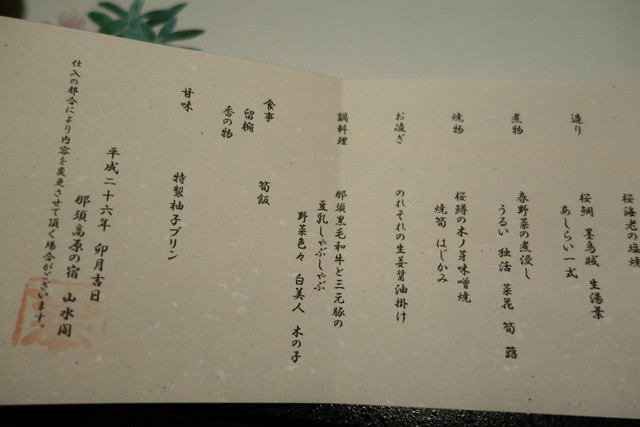 桜海老の塩焼
造り
桜鯛 墨烏賊 生湯葉
あしらい一式
煮物
春野菜の煮浸し
うるい 独活 菜花 筍 蕗
焼物
桜鱒の木ノ芽味噌焼
焼筍 はじかみ
お凌ぎ
のれそれの生姜醤油掛け
鍋料理
那須黒毛和牛と三元豚の
豆乳しゃぶしゃぶ
野菜色々 白美人 木の子
食事
筍飯
留椀
香の物
甘味
特製柚子プリン
平成二十六年 卯月吉日
那須高原の宿 山水閣
仕入の都合により内容を変更させて頂く場合がございます。